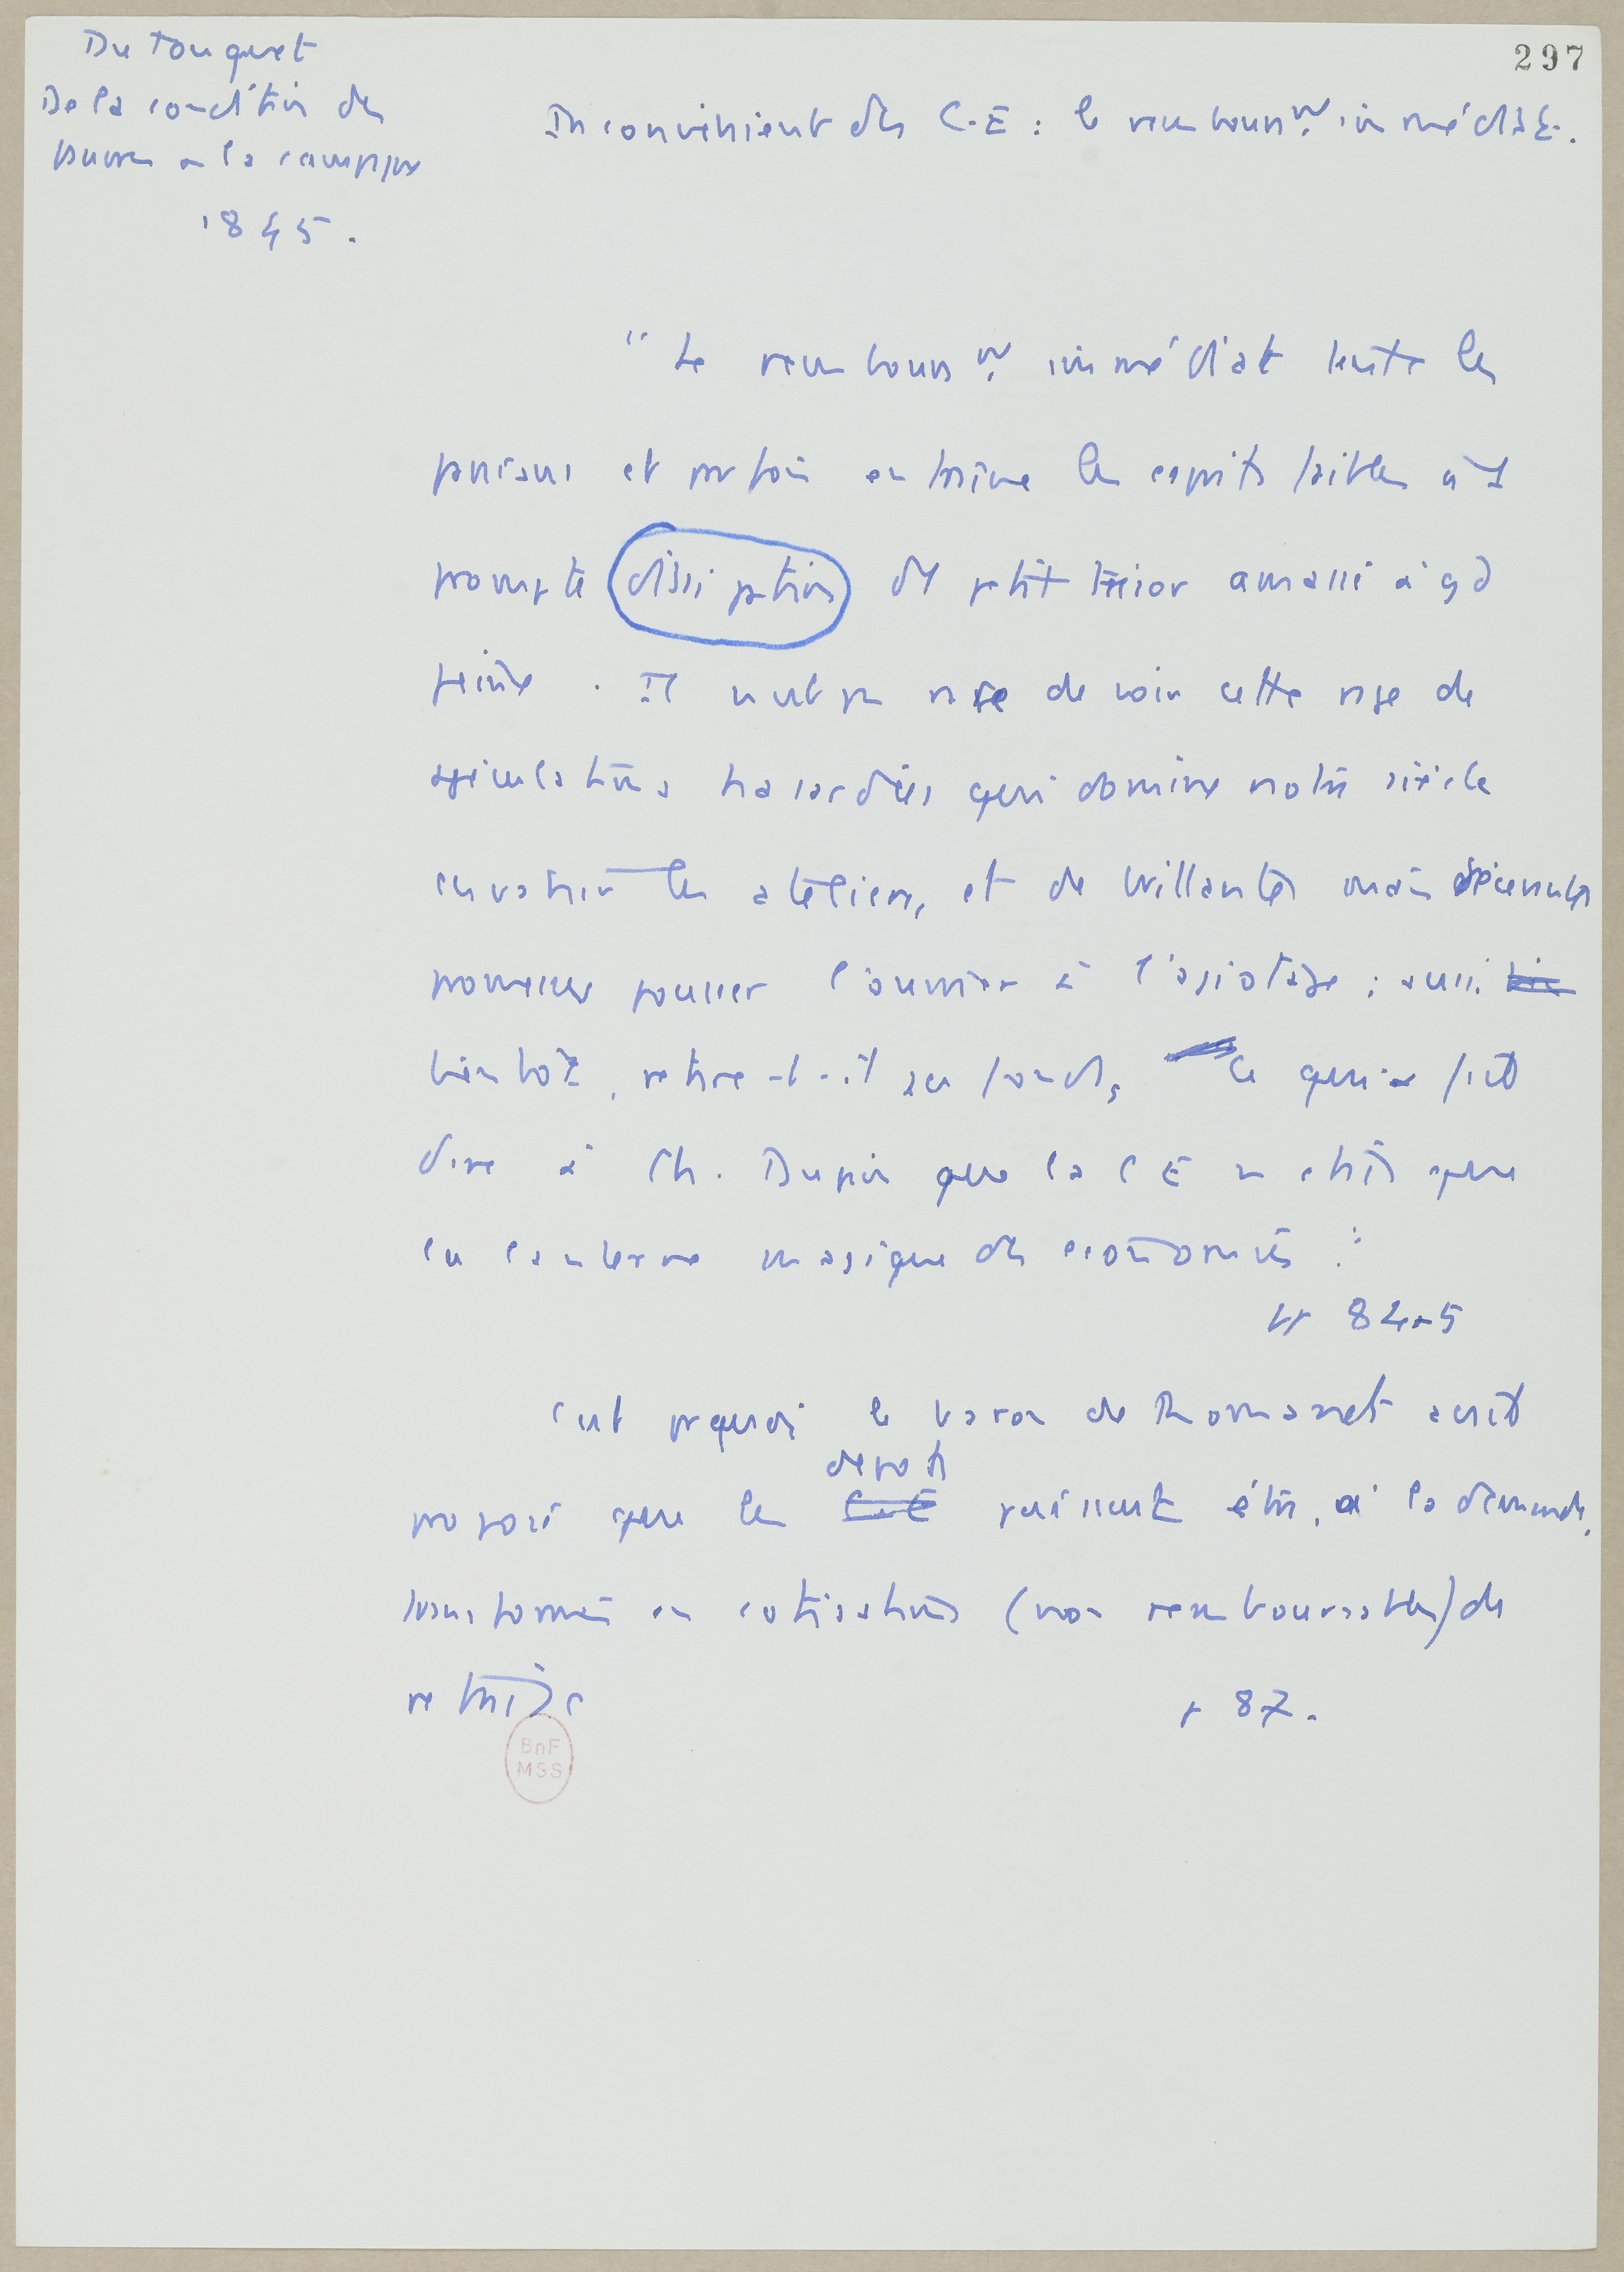 297
Du Touquet
De la condition des
pauvres à la campagne
1845.
Inconvénient des C.E : le rembours^nt immédiat.
"Le rembours^nt immédiat tente les
passions et parfois entraîne les esprits faibles à 1
prompte dissipation d'1 petit trésor amassé à gd
peine. Il n'est pas rare de voir cette rage de
spéculations hasardées qui domine notre siècle
envahir les ateliers, et de brillantes mais décevantes
promesses pousser l'ouvrier à l'agiotage ; aussi
bientôt, retire-t-il ses fonds, ce qui a fait
dire à Ch. Dupin que la C E n'était que
la lanterne magique des économies"
pp 84-5
C'est pquoi le baron de Romanet avait
dépôts
proposé que les C.E puissent être, à la demande,
transformés en cotisations (non remboursables) de
retraite
p 87.
BnF
MSS